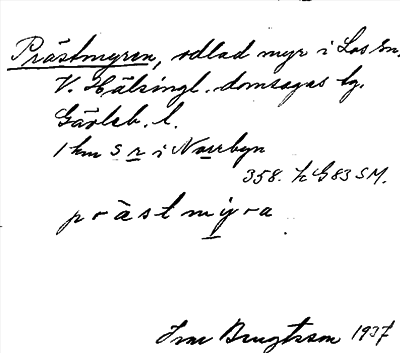 Prästmyren, odlad myr i Los sn.
V. Hälsingl. domsagas tg.
Gävleb. l.
1 km S n i Norrbyn
358. K G 83 SM.
präst myra
Ivar Bengtsson 1937